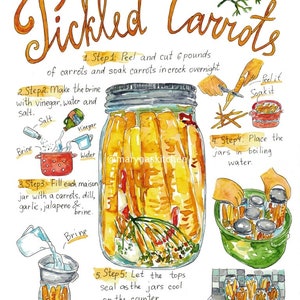 Pickled Carrots
1. Step1: Peel and cut 6 pounds
of carrots and soak carrots in crock overnight.
Peel it
Soak it
2. Step2: Make the brine
with vinegar, water and
salt.
Salt
Vinegar
Brine
Water
3. Step3: Fill each mason
jar with a carrots, dill,
garlic, jalapeno &
brine.
Brine
4. Step4: Place the
jars in boiling
water.
5. Step5: Let the tops
seal as the jars cool
on the counter